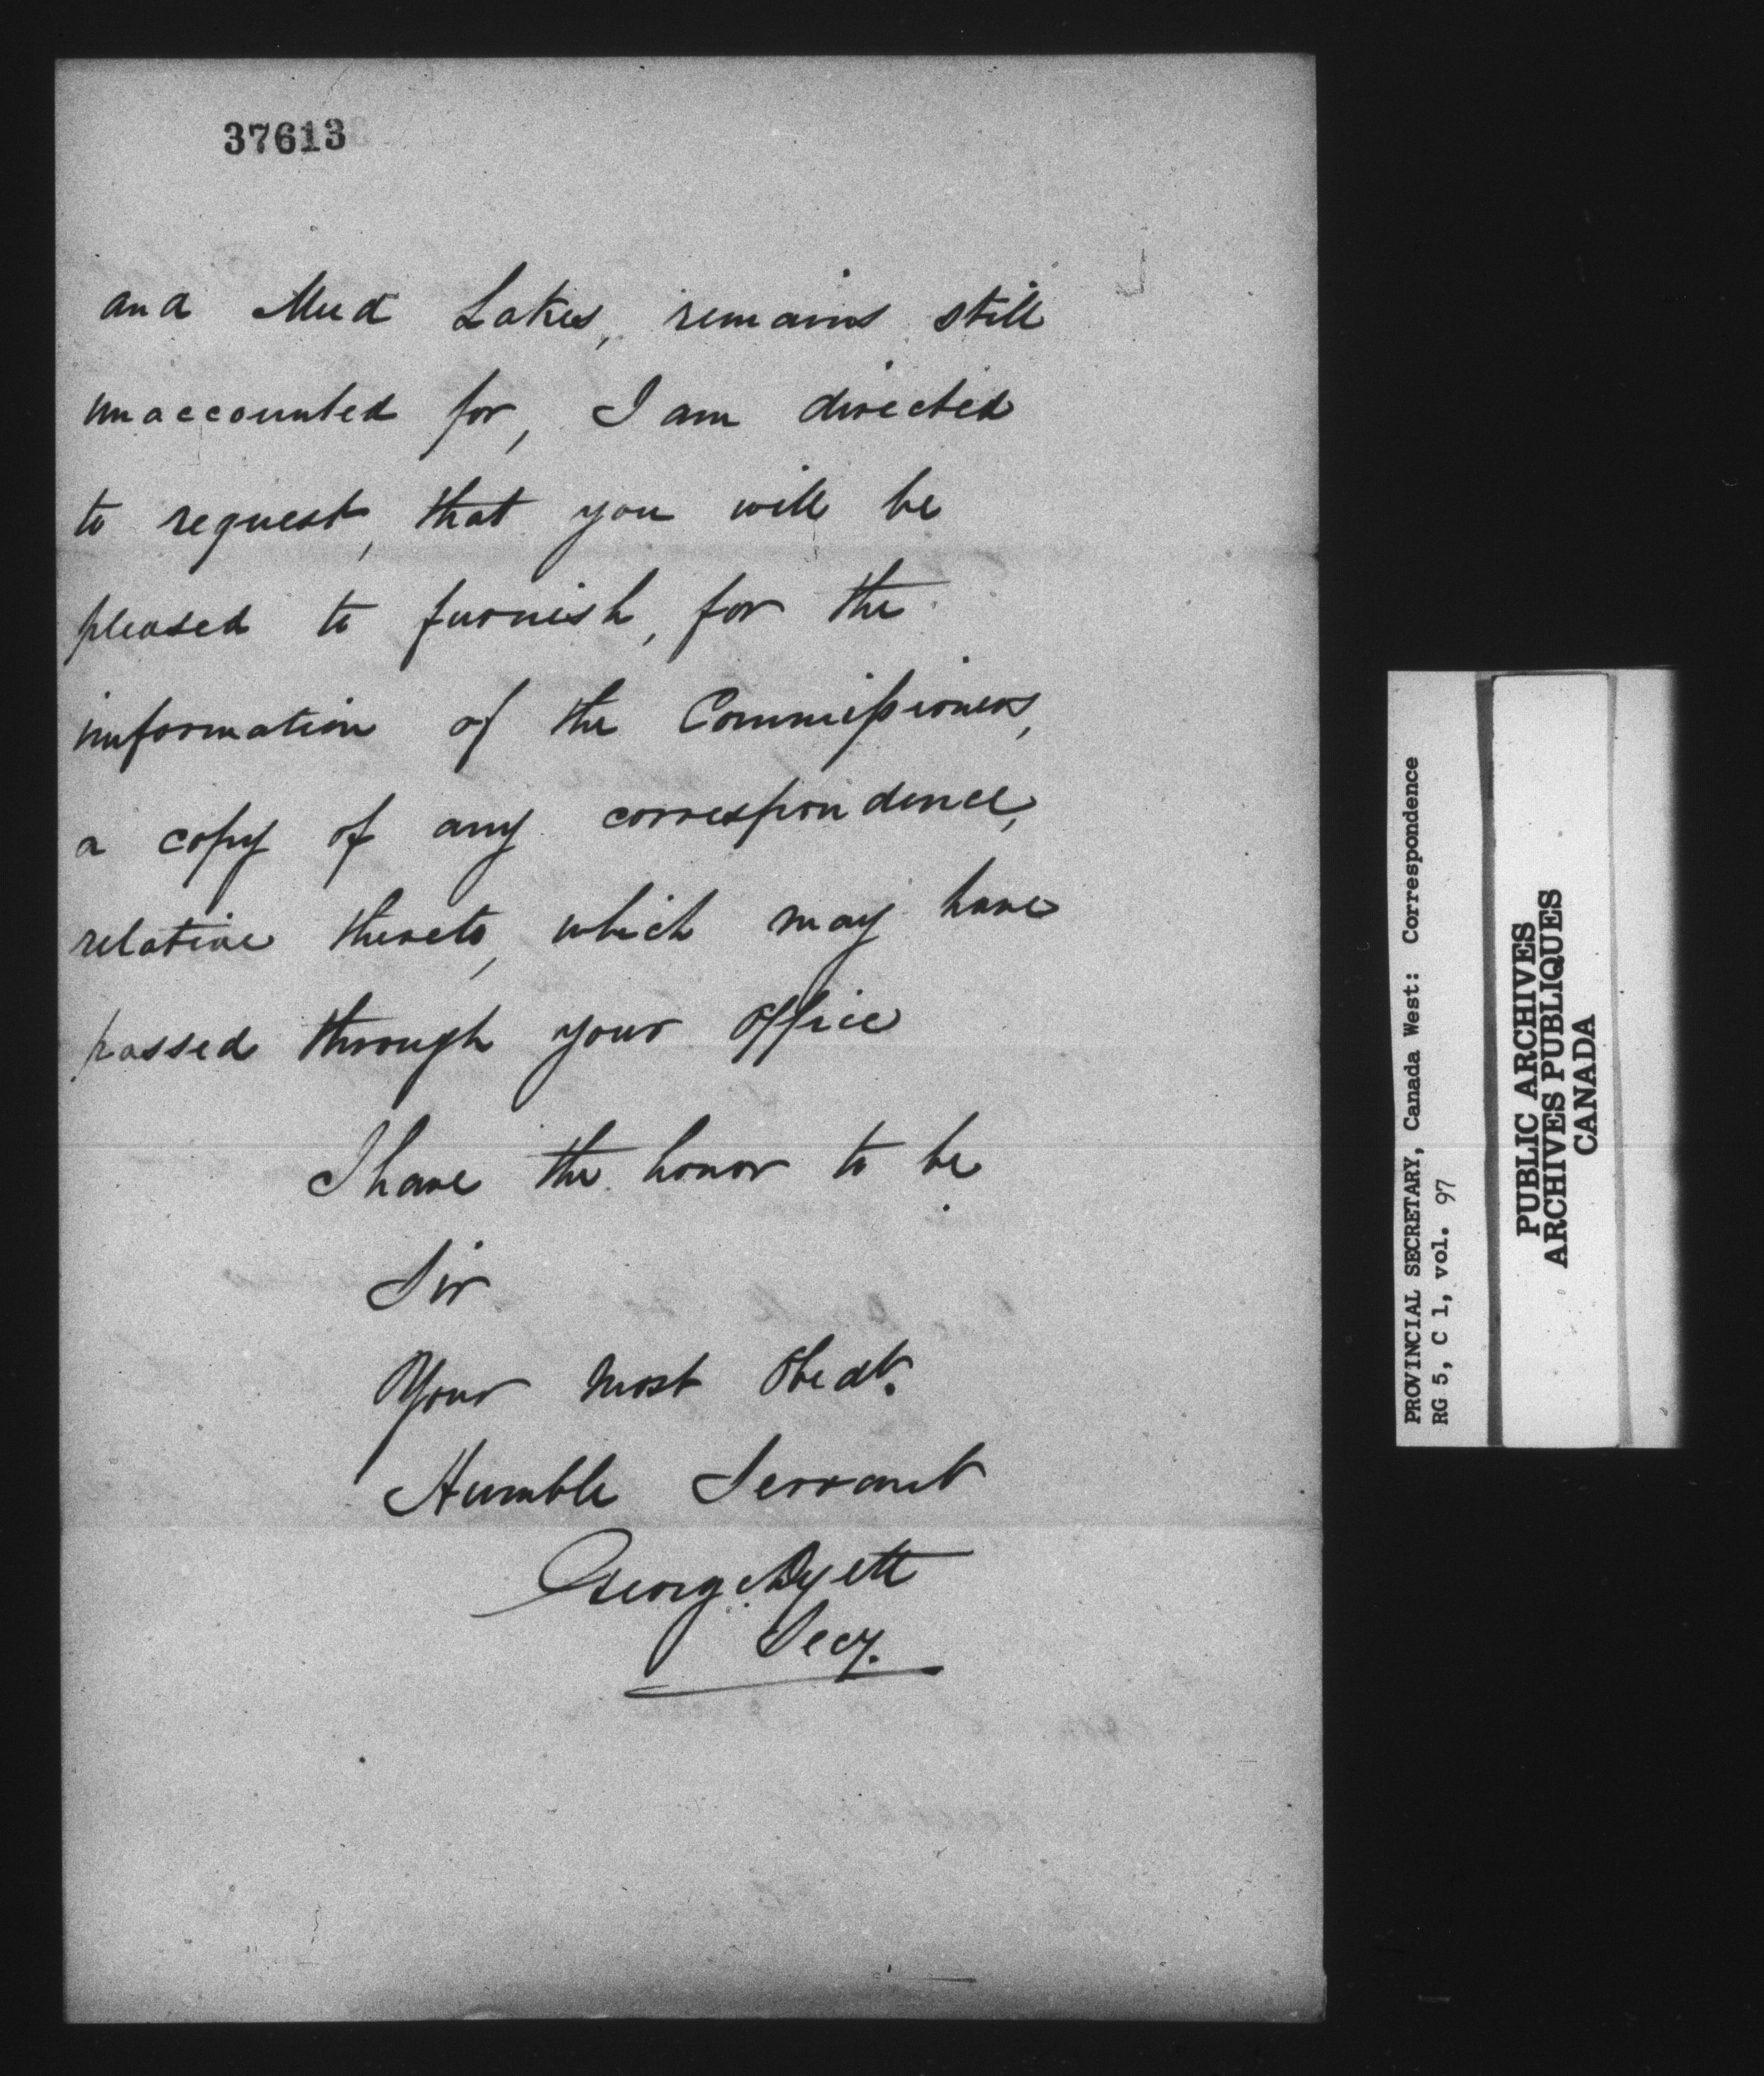 37613
and Mud Lakes, remains still
unaccounted for, I am directed
to request, that you will be
pleased to furnish, for the
information of the Commissioners,
a copy of any correspondence,
relative thereto, which may have
passed through your office
I have the honor to be
Sir
Your most Obedt.
Humble Servant
George Dyett
Secy.
PROVINCIAL SECRETARY, Canada West: Correspondence
RG 5, C 1, vol. 97
PUBLIC ARCHIVES
ARCHIVES PUBLIQUES
CANADA